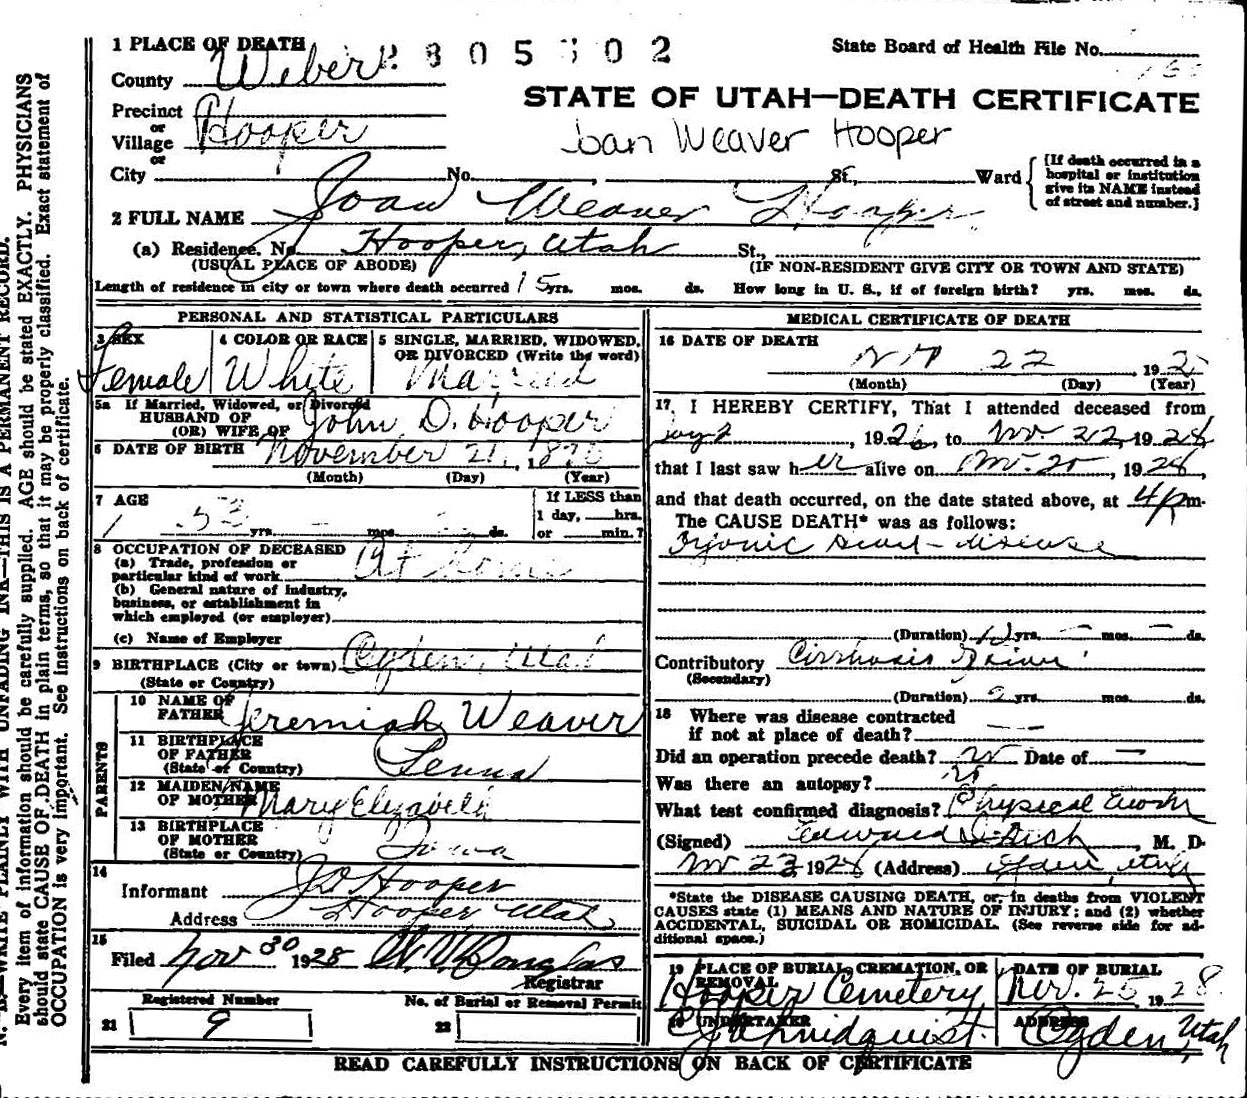 1 PLACE OF DEATH
805 02
State Board of Health File No.
County Weber
STATE OF UTAH—DEATH CERTIFICATE
Precinct
or
Village Hooper
or
Joan Weaver Hooper
City No. St., Ward
[If death occurred in a
hospital or institution
give its NAME instead
of street and number.]
2 FULL NAME Joan Weaver Hooper
(a) Residence. No. Hooper, Utah St.,
(USUAL PLACE OF ABODE) (IF NON-RESIDENT GIVE CITY OR TOWN AND STATE)
Length of residence in city or town where death occurred 15 yrs. mos. ds. How long in U. S., if of foreign birth? yrs. mos. ds.
PERSONAL AND STATISTICAL PARTICULARS
3 SEX
Female
4 COLOR OR RACE
White
5 SINGLE, MARRIED, WIDOWED,
OR DIVORCED (Write the word)
Married
5a If Married, Widowed, or Divorced
HUSBAND OF
(OR) WIFE OF John D. Hooper
6 DATE OF BIRTH November 21, 18
(Month) (Day) (Year)
7 AGE
53 yrs. mos. ds.
If LESS than
1 day, hrs.
or min.?
8 OCCUPATION OF DECEASED
(a) Trade, profession or
particular kind of work At home
(b) General nature of industry,
business, or establishment in
which employed (or employer)
(c) Name of Employer
9 BIRTHPLACE (City or town) Ogden, Utah
(State or Country)
PARENTS
10 NAME OF
FATHER Jeremiah Weaver
11 BIRTHPLACE
OF FATHER
(State or Country) Penna
12 MAIDEN NAME
OF MOTHER Mary Elizabeth
13 BIRTHPLACE
OF MOTHER
(State or Country) Iowa
14
Informant J D Hooper
Address Hooper Utah
15
Filed Nov 30 1928
Registrar
Registered Number No. of Burial or Removal Permit
21 9 22
MEDICAL CERTIFICATE OF DEATH
16 DATE OF DEATH
22, 192
(Month) (Day) (Year)
17 I HEREBY CERTIFY, That I attended deceased from
, 1926, to Nov. 22, 1928
that I last saw her alive on Nov. 20, 1928,
and that death occurred, on the date stated above, at 4 pm.
The CAUSE DEATH* was as follows:
heart disease
(Duration) yrs. — mos. — ds.
Contributory Cirrhosis Liver
(Secondary)
(Duration) 2 yrs. mos. ds.
18 Where was disease contracted
if not at place of death?
Did an operation precede death? no Date of —
Was there an autopsy? no
What test confirmed diagnosis? Physical
(Signed) , M. D.
Nov 23 1928 (Address) Ogden, Utah
*State the DISEASE CAUSING DEATH, or, in deaths from VIOLENT
CAUSES state (1) MEANS AND NATURE OF INJURY; and (2) whether
ACCIDENTAL, SUICIDAL OR HOMICIDAL. (See reverse side for ad-
ditional space.)
19 PLACE OF BURIAL, CREMATION, OR
REMOVAL
Hooper Cemetery
DATE OF BURIAL
Nov. 25, 1928
UNDERTAKER
ADDRESS
Ogden, Utah
READ CAREFULLY INSTRUCTIONS ON BACK OF CERTIFICATE
N. B.—WRITE PLAINLY WITH UNFADING INK—THIS IS A PERMANENT RECORD.
Every item of information should be carefully supplied. AGE should be stated EXACTLY. PHYSICIANS
should state CAUSE OF DEATH in plain terms, so that it may be properly classified. Exact statement of
OCCUPATION is very important. See instructions on back of certificate.